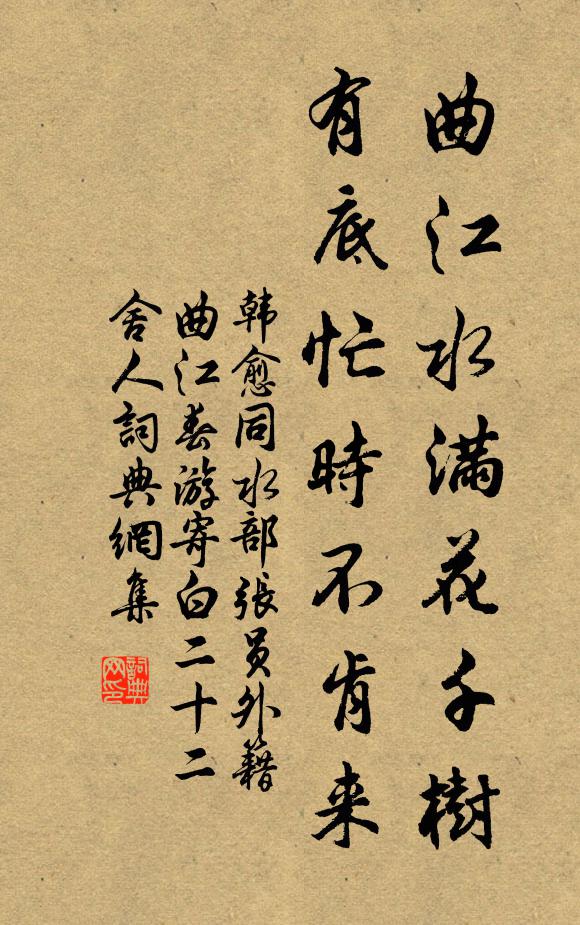 曲江水满花千樹
有底忙時不肯来
韩愈同水部張员外籍
曲江春游寄白二十二
舍人詞典網集
詞典
网印